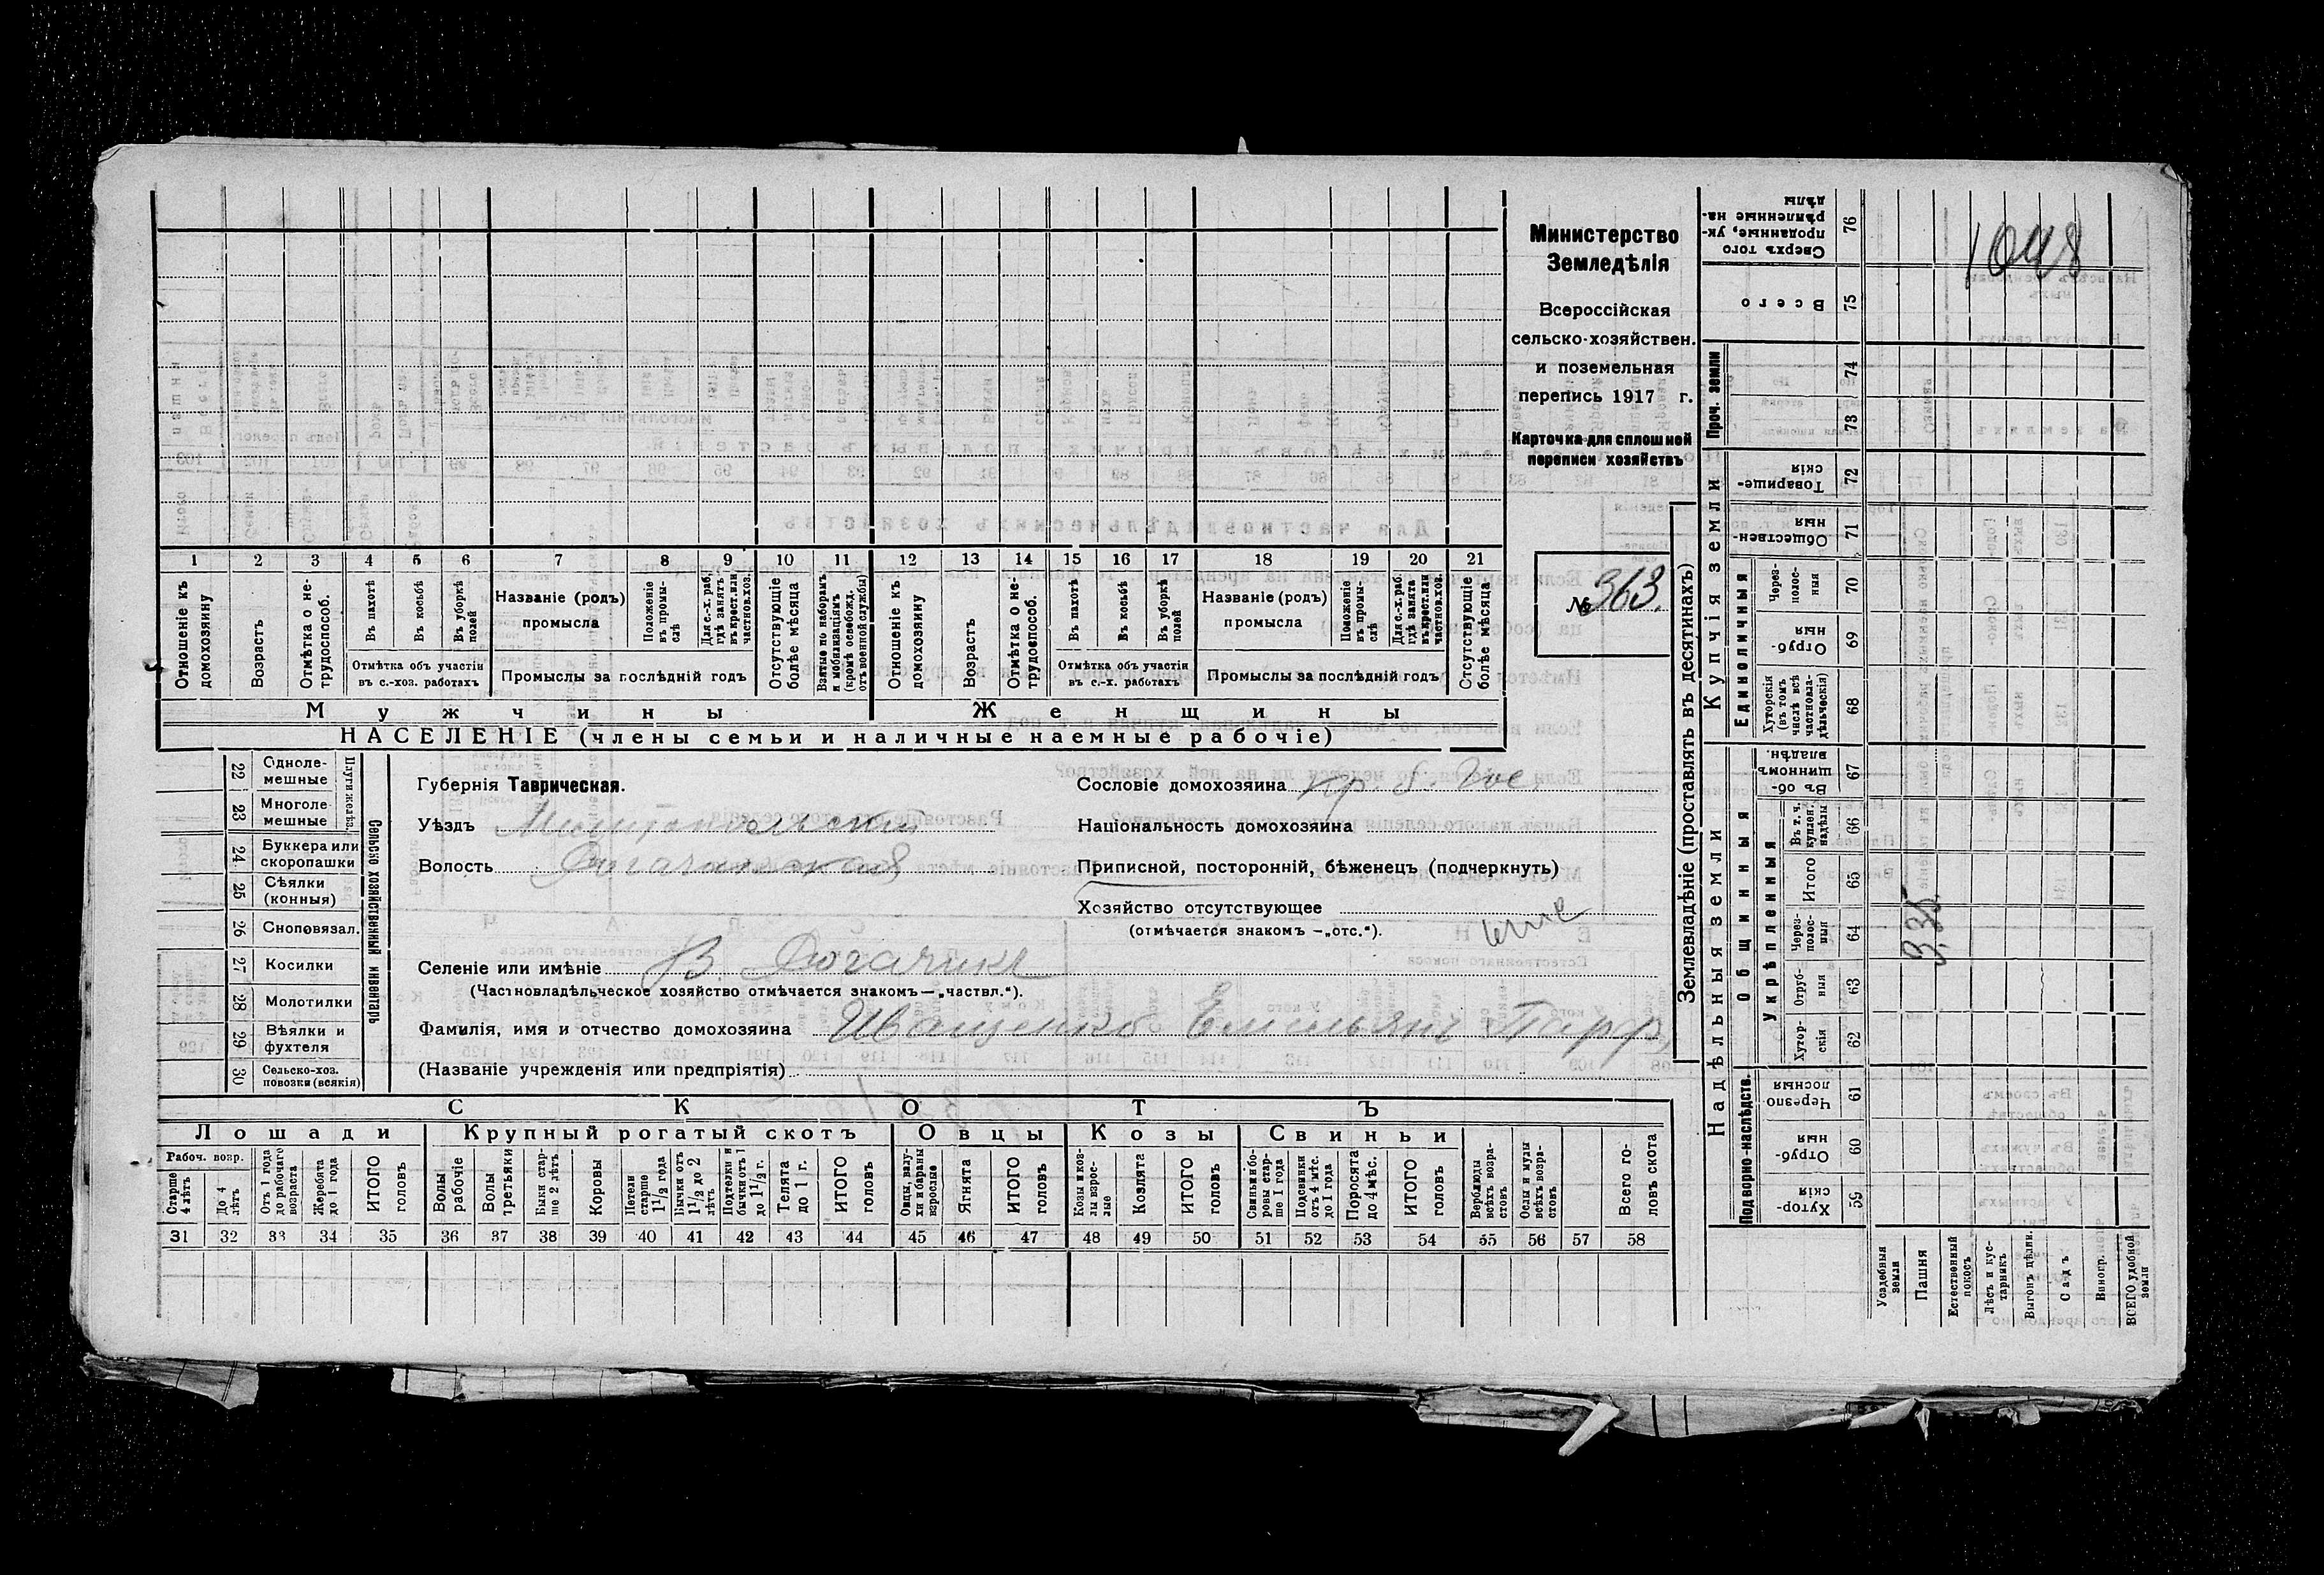 Министерство
Земледѣлія
Всероссійская
сельско-хозяйствен.
и поземельная
перепись 1917 г.
Карточка для сплошной
переписи хозяйствъ
№ 363.
1048
1 2 3 4 5 6 7 8 9 10 11 12 13 14 15 16 17 18 19 20 21
Отношеніе къ домохозяину
Возрастъ
Отмѣтка о нетрудоспособ.
Въ пахотѣ
Въ косьбѣ
Въ уборкѣ полей
Отмѣтка объ участіи въ с.-хоз. работахъ
Названіе (родъ) промысла
Положеніе въ промыслѣ
Для с.-х. раб, гдѣ занятъ въ крест. или частнов. хоз.
Промыслы за послѣдній годъ
Отсутствующіе болѣе мѣсяца
Взятые по наборамъ и мобилизаціямъ (кромѣ освобожд. отъ военной службы)
Отношеніе къ домохозяину
Возрастъ
Отмѣтка о нетрудоспособ.
Въ пахотѣ
Въ косьбѣ
Въ уборкѣ полей
Отмѣтка объ участіи въ с.-х. работахъ
Названіе (родъ) промысла
Положеніе въ промыслѣ
Для с.-х. раб. гдѣ занята въ крест. или частнов. хоз.
Промыслы за послѣдній годъ
Отсутствующіе болѣе мѣсяца
Мужчины
Женщины
НАСЕЛЕНІЕ (члены семьи и наличные наемные рабочіе)
22 Однолемешные
23 Многолемешные
Плуги желѣз.
24 Буккера или скоропашки
25 Сѣялки (конныя)
26 Сноповязал.
27 Косилки
28 Молотилки
29 Вѣялки и фухтеля
30 Сельско-хоз. повозки (всякія)
Сельско хозяйственный инвентарь
Губернія Таврическая.
Уѣздъ Мелитопольскій
Волость
Сословіе домохозяина кр. б. Гос.
Національность домохозяина
Приписной, посторонній, бѣженецъ (подчеркнуть)
Хозяйство отсутствующее
(отмѣчается знакомъ —„отс.“).
Селеніе или имѣніе В. Рогачикъ
(Частновладѣльческое хозяйство отмѣчается знакомъ—„частвл.“).
Фамилія, имя и отчество домохозяина Иващенко Емельянъ Парф.
(Названіе учрежденія или предпріятія)
СКОТЪ
Лошади
Крупный рогатый скотъ
Овцы
Козы
Свиньи
Рабоч. возр.
Старше 4 лѣтъ
До 4 лѣтъ
Отъ 1 года до рабочаго возраста
Жеребята до 1 года
ИТОГО головъ
Волы рабочіе
Волы третьяки
Быки старше 2 лѣтъ
Коровы
Нетели старше 1 1/2 года
Бычки отъ 1 1/2 до 2 лѣтъ
Подтелки и бычки отъ 1 до 1 1/2 г.
Телята до 1 г.
ИТОГО головъ
Овцы, валухи и бараны взрослые
Ягнята
ИТОГО головъ
Козы и козлы взрослые
Козлята
ИТОГО головъ
Свиньи и боровы старше 1 года
Подсвинки отъ 4 мѣс. до 1 года
Поросята до 4 мѣс.
ИТОГО головъ
Верблюды всѣхъ возрастовъ
Ослы и мулы всѣхъ возрастовъ
Всего головъ скота
31 32 33 34 35 36 37 38 39 40 41 42 43 44 45 46 47 48 49 50 51 52 53 54 55 56 57 58
Землевладѣніе (проставлять въ десятинахъ)
Купчія земли
Надѣльныя земли
Проч. земли
76 Сверхъ того проданные, укрѣпленные надѣлы
75 Всего
74
73
72 Товарищескія
71 Общественныя
Единоличныя
70 Черезполосныя
69 Отрубныя
68 Хуторскія (въ томъ числѣ всѣ частновладѣльческія)
Общинныя
67 Въ общинномъ владѣн.
Укрѣпленныя
66 Въ т. ч. куплен. надѣлы
65 Итого
64 Черезполосныя
63 Отрубныя
62 Хуторскія
Подворно-наслѣдств.
61 Черезполосныя
60 Отрубныя
59 Хуторскія
Усадебныя земли
Пашня
Естественный покосъ
Лѣсъ и кустарникъ
Выгонъ цѣлин.
Садъ
Виногр.
ВСЕГО удобной земли